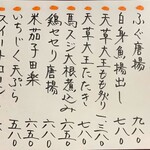 ふぐ唐揚 九八〇
白身魚揚出し 七八〇
天草大王もも炙り
天草大王たたき 七八〇
馬スジ大根煮込み
鶏セセリ唐揚 六五〇
米茄子田楽 六五〇
いちじく天ぷら 五八〇
スイートコーン